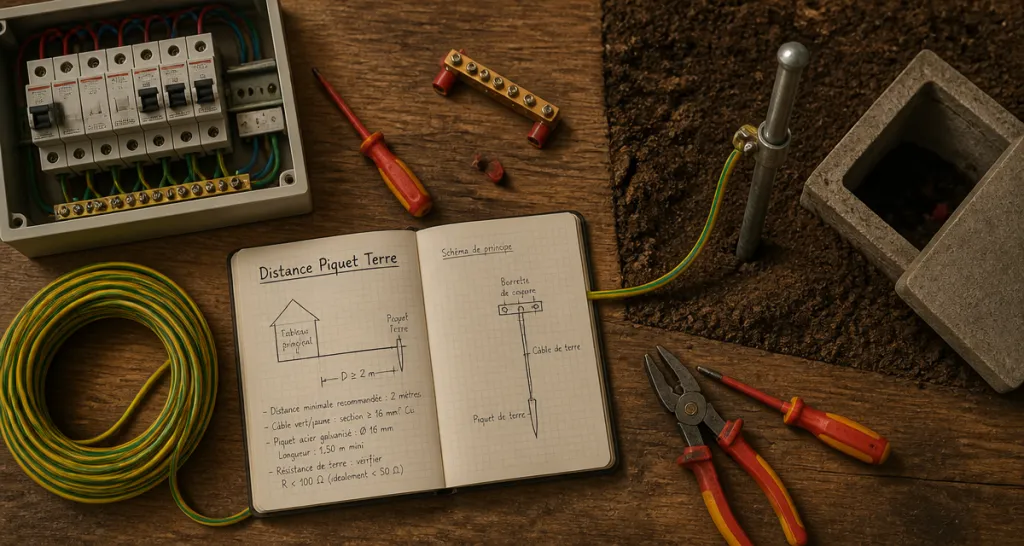 Distance Piquet Terre
Tableau
principal
Piquet
Terre
D ≥ 2 m
- Distance minimale recommandée : 2 mètres
- Câble vert/jaune : section ≥ 16 mm² Cu
- Piquet acier galvanisé : Ø 16 mm
Longueur : 1,50 m mini
- Résistance de terre : vérifier
R < 100 Ω (idéalement < 50 Ω)
Schéma de principe
Borrette
de
Câble de terre
Piquet de terre